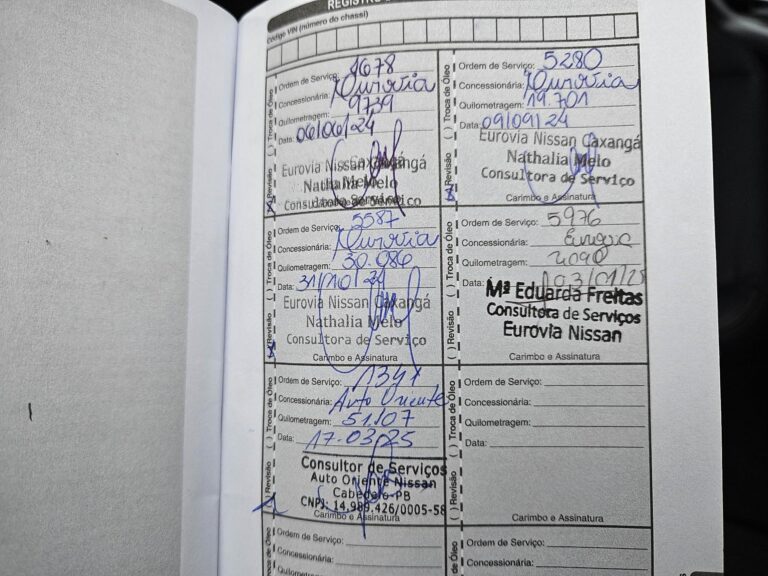 REGISTRO
Código VIN (número do chassi)
( ) Revisão ( ) Troca de Óleo
Ordem de Serviço: 4678
Concessionária: Eurovia
Quilometragem: 9739
Data: 06/06/24
Eurovia Nissan Caxangá
Nathalia Melo
Consultora de Serviço
( ) Revisão ( ) Troca de Óleo
Ordem de Serviço: 5280
Concessionária: Eurovia
Quilometragem: 19.701
Data: 09/09/24
Eurovia Nissan Caxangá
Nathalia Melo
Consultora de Serviço
Carimbo e Assinatura
( ) Revisão ( ) Troca de Óleo
Ordem de Serviço: 5587
Concessionária: Eurovia
Quilometragem: 30.086
Data: 31/10/24
Eurovia Nissan Caxangá
Nathalia Melo
Consultora de Serviço
Carimbo e Assinatura
( ) Revisão ( ) Troca de Óleo
Ordem de Serviço: 5976
Concessionária:
Quilometragem:
Data: 03/01/25
Mª Eduarda Freitas
Consultora de Serviços
Eurovia Nissan
Carimbo e Assinatura
( ) Revisão ( ) Troca de Óleo
Ordem de Serviço: 1341
Concessionária: Auto Oriente
Quilometragem: 51.107
Data: 17-03-25
Consultor de Serviços
Auto Oriente Nissan
Cabedelo-PB
CNPJ: 14.989.426/0005-58
Carimbo e Assinatura
( ) Revisão ( ) Troca de Óleo
Ordem de Serviço:
Concessionária:
Quilometragem:
Data:
Carimbo e Assinatura
Ordem de Serviço:
Concessionária:
Quilometragem:
Ordem de Serviço:
Concessionária:
Quilometragem: